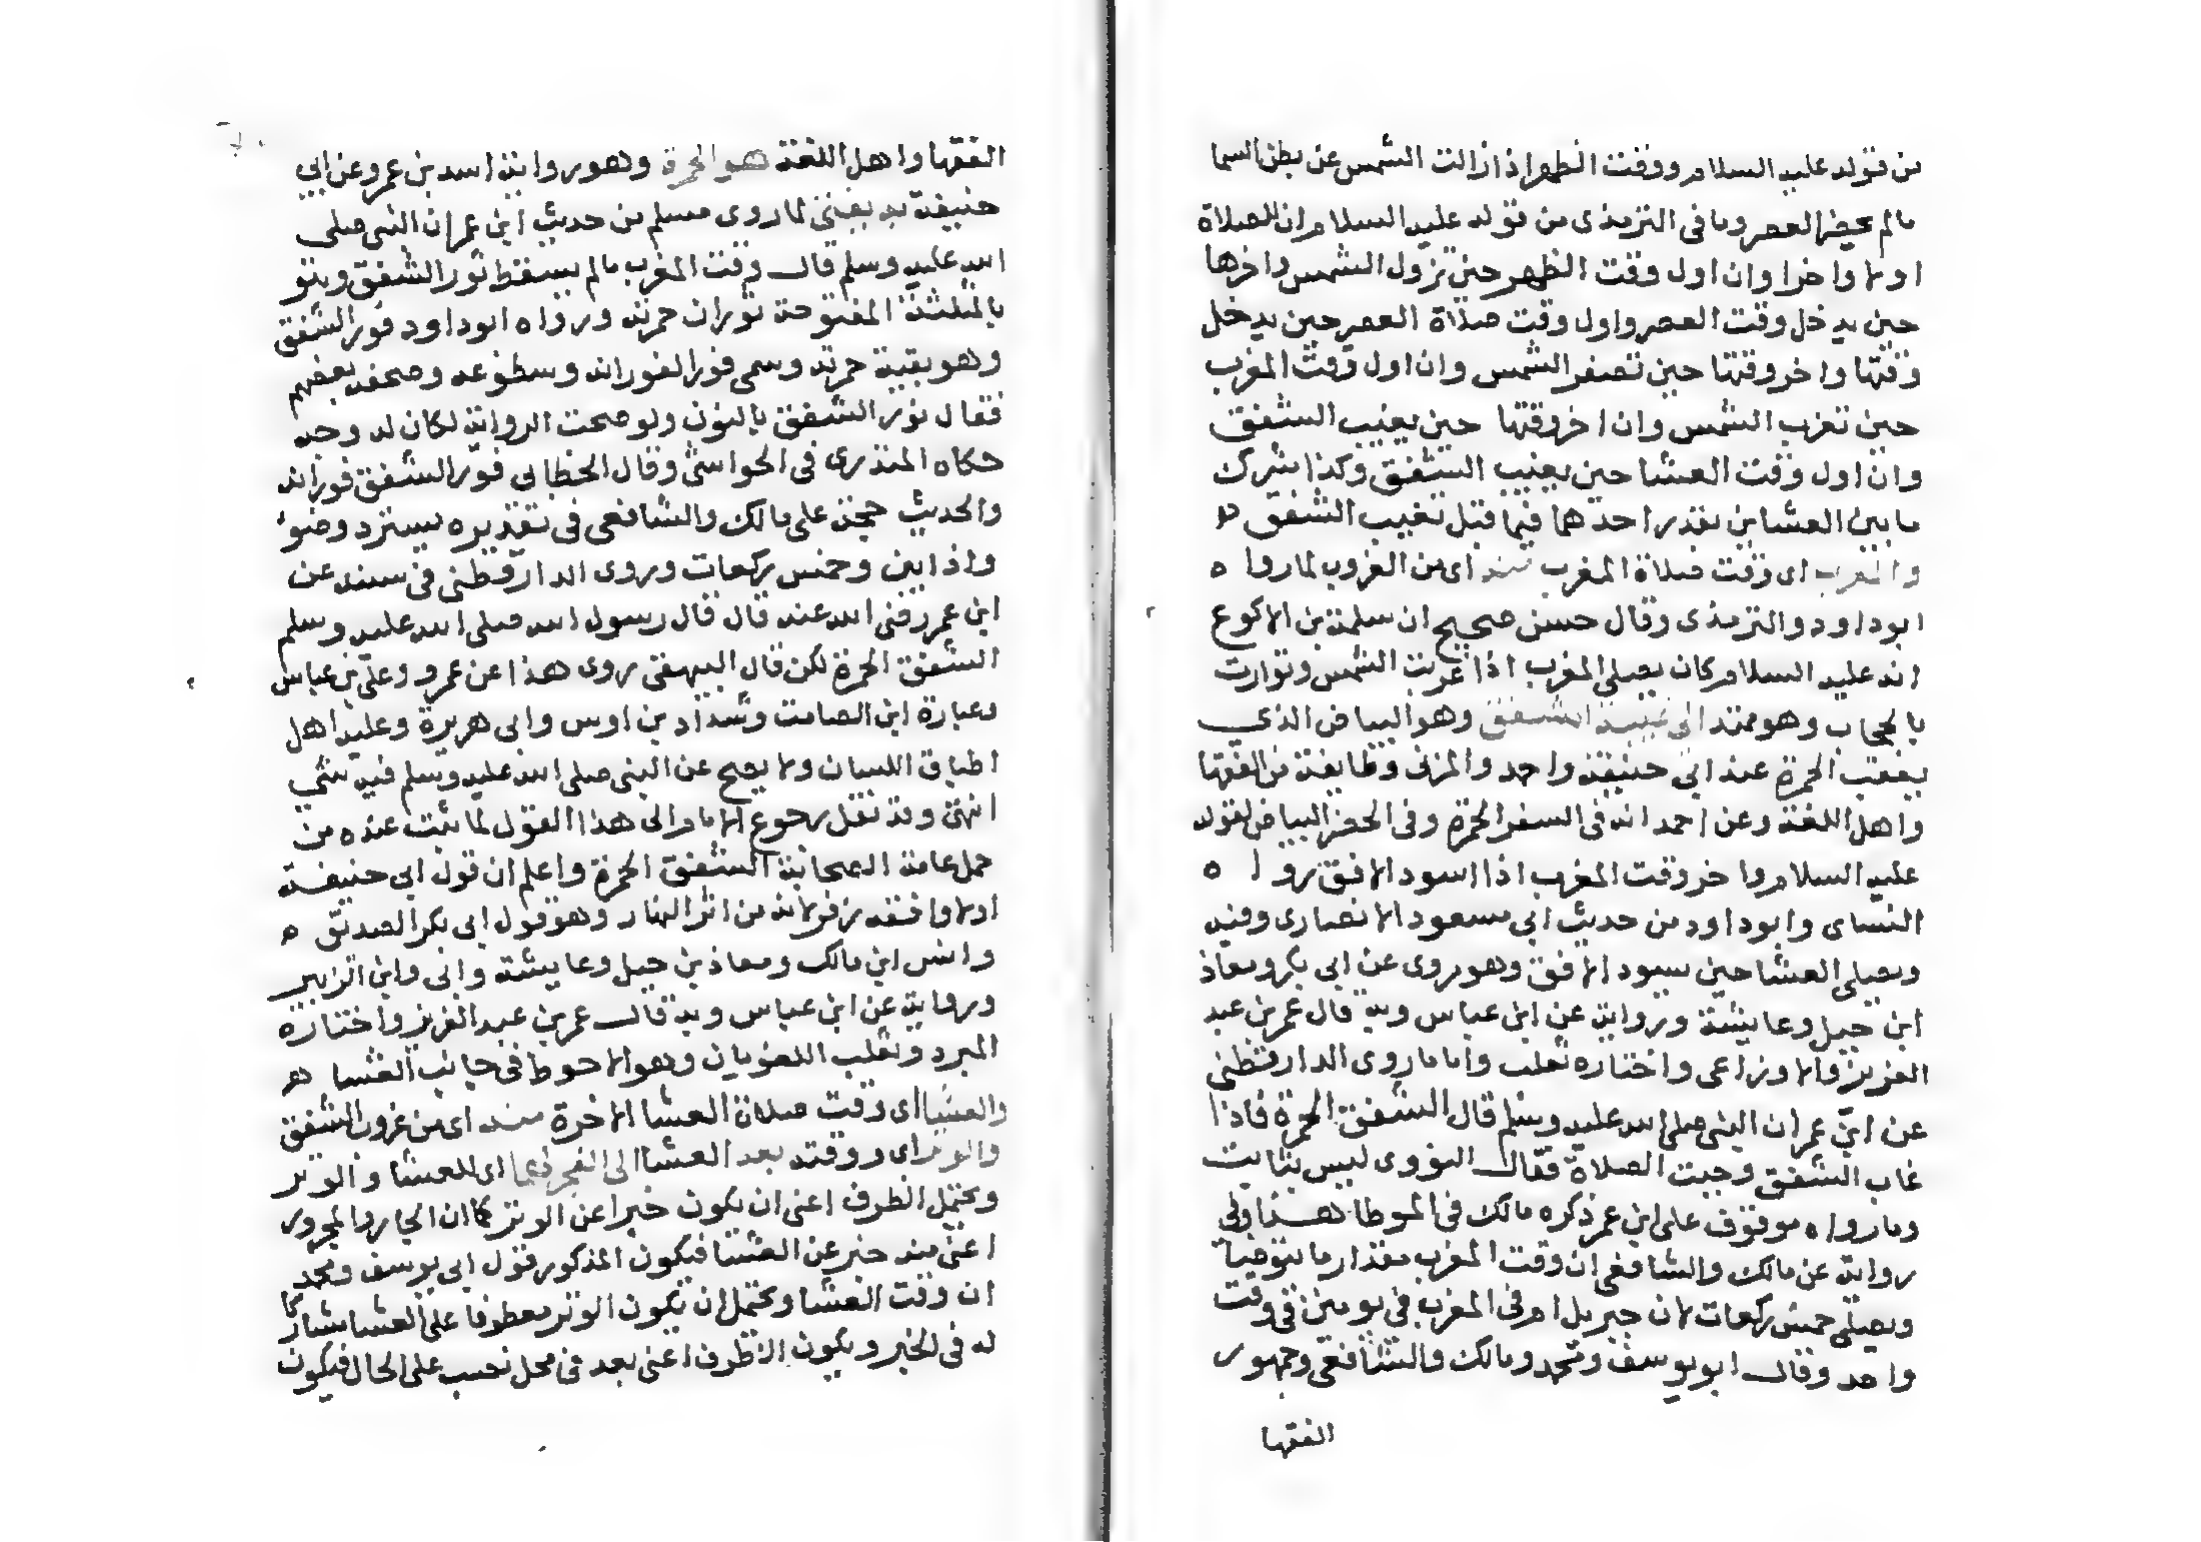 من قوله عليه السلام ووقت الظهر اذا زالت الشمس عن بطن السما
مالم يحضر العصر وما فى الترمذى من قوله عليه السلام ان للصلاة
اولا واخرا وان اول وقت الظهر حين تزول الشمس واخرها
حين يدخل وقت العصر واول وقت صلاة العصر حين يدخل
وقتها واخر وقتها حين تصفر الشمس وان اول وقت المغرب
حين تغرب الشمس وان اخر وقتها حين يغيب الشفق
وان اول وقت العشا حين يغيب الشفق وكذا شرك
ما بين العشاين بقدر احدهما فيما قبل تغيب الشفق ه
والمغرب اى وقت صلاة المغرب منه اى من الغروب لما روا ه
ابوداود والترمذى وقال حسن صحيح ان سلمة بن الاكوع
انه عليه السلام كان يصلى المغرب اذا غربت الشمس وتوارت
بالحجاب وهو ممتد الى غيبة الشفق وهو البياض الذي
يعقب الحمرة عند ابى حنيفة واحمد والمزنى وطايفة من الفقها
واهل اللغة وعن احمد انه فى السفر الحمرة وفى الحضر البياض لقوله
عليه السلام واخر وقت المغرب اذا اسود الافق روا ه
النساى وابوداود من حديث ابى مسعود الانصارى وفيه
ويصلى العشا حين يسود الافق وهو روى عن ابى بكر ومعاذ
ابن جبل وعايشة ورواية عن ابن عباس وبه قال عمر بن عبد
العزيز والاوزاعى واختاره ثعلب واما ما روى الدارقطنى
عن ابن عمر ان النبى صلى الله عليه وسلم قال الشفق الحمرة فاذا
غاب الشفق وجبت الصلاة فقال النووى ليس بثابت
وما رواه موقوف على ابن عمر ذكره مالك فى الموطا هذا وفى
رواية عن مالك والشافعى ان وقت المغرب مقدار ما يتوضا
ويصلى خمس ركعات لان جبريل ام فى المغرب فى يومين فى وقت
واحد وقال ابو يوسف ومحمد ومالك والشافعى وجمهور
الفقها
الفقها واهل اللغة هو الحمرة وهو رواية اسد بن عمرو عن ابى
حنيفة به يفتى لما روى مسلم من حديث ابن عمر ان النبى صلى
الله عليه وسلم قال وقت المغرب مالم يسقط ثور الشفق وثو
بالمثلثة المفتوحة ثوران حمرته ورواه ابوداود فور الشفق
وهو بقية حمرته وسمى فورا لفورانه وسطوعه وصحفه بعضهم
فقال نور الشفق بالنون ولو صحت الرواية لكان له وجه
حكاه المنذرى فى الحواشى وقال الخطابى فور الشفق فورانه
والحديث حجة على مالك والشافعى فى تقديره بستر د وضو
واذانين وخمس ركعات وروى الدارقطنى فى سننه عن
ابن عمر رضى الله عنه قال قال رسول الله صلى الله عليه وسلم
الشفق الحمرة لكن قال البيهقى روى هذا عن عمر و وعلى بن عباس
وعبادة ابن الصامت وشداد بن اوس وابى هريرة وعليه اهل
اطباق اللسان ولا يصح عن النبى صلى الله عليه وسلم فيه شي
انتهى وقد نقل رجوع الامام الى هذا القول لما ثبت عنده من
حمل عامة الصحابة الشفق الحمرة واعلم ان قول ابى حنيفة
اولا وافقه زفر لانه من اثر النهار وهو قول ابى بكر الصديق ه
وانس ابن مالك ومعاذ بن جبل وعايشة وابى وابن الزبير
ورواية عن ابن عباس وبه قال عمر بن عبد العزيز واختاره
المبرد وثعلب اللغويان وهو الاحوط فى جانب العشا ه
والعشا اى وقت صلاة العشا الاخرة منه اى من غروب الشفق
والوتر اى ووقته بعد العشا الى الفجر لهما اى للعشا والوتر
ويحتمل الظرف اعنى ان يكون خبرا عن الوتر كما ان الجار والمجرور
اعنى منه خبر عن العشا فيكون المذكور قول ابى يوسف ومحمد
ان وقت العشا ويحتمل ان يكون الوتر معطوفا على العشا مشاركا
له فى الخبر ويكون الظرف اعنى بعد فى محل نصب على الحال فيكون